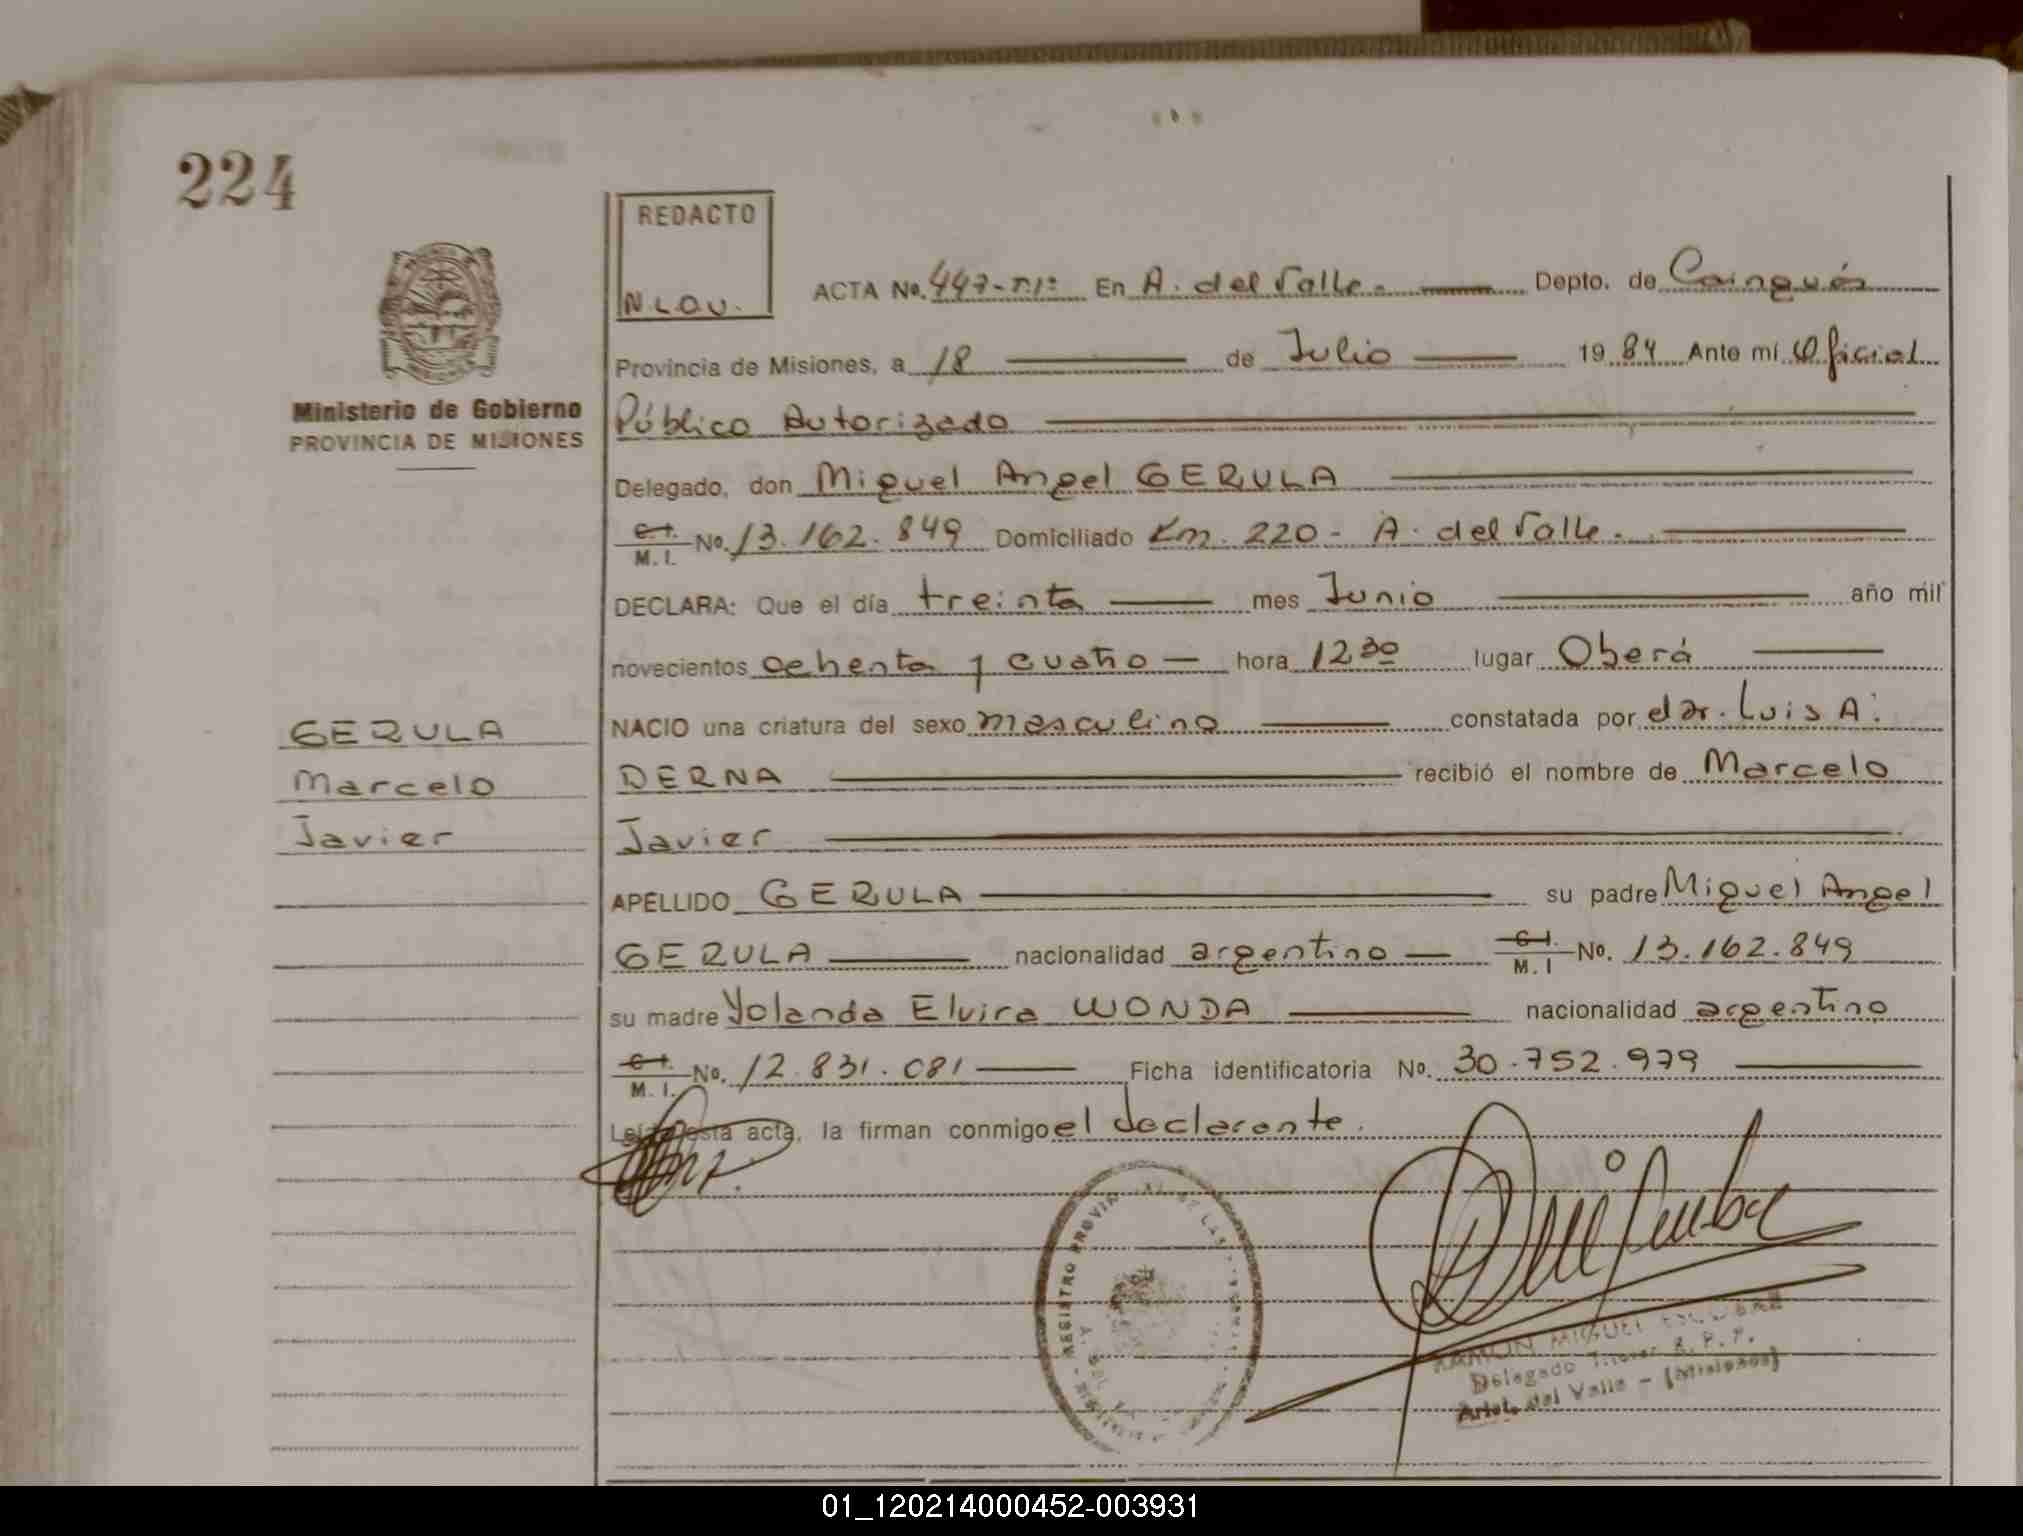 224
REDACTO
N.L.O.V.
ACTA No. 447-T.1º En A. del Valle. Depto. de Cainguás
Provincia de Misiones, a 18 de Julio 1984 Ante mí Oficial
Ministerio de Gobierno
PROVINCIA DE MISIONES
Público Autorizado
Delegado, don Miguel Angel GERULA
C.I. M.I. No. 13.162.849 Domiciliado Km. 220 - A. del Valle.
DECLARA: Que el día treinta mes Junio año mil
novecientos ochenta y cuatro hora 12 30 lugar Oberá
NACIO una criatura del sexo masculino constatada por el dr. Luis A.
DERNA recibió el nombre de Marcelo
Javier
GERULA
Marcelo
Javier
APELLIDO GERULA su padre Miguel Angel
GERULA nacionalidad argentino C.I. M.I No. 13.162.849
su madre Yolanda Elvira WONDA nacionalidad argentino
C.I. M.I. No. 12.831.081 Ficha identificatoria No. 30.752.979
Leída esta acta, la firman conmigo el declarante.
REGISTRO PROVINCIAL DE LAS
RAMON MIGUEL ESCOBAR
Delegado Titular R. P. P.
Arist. del Valle - (Misiones)
01_120214000452-003931